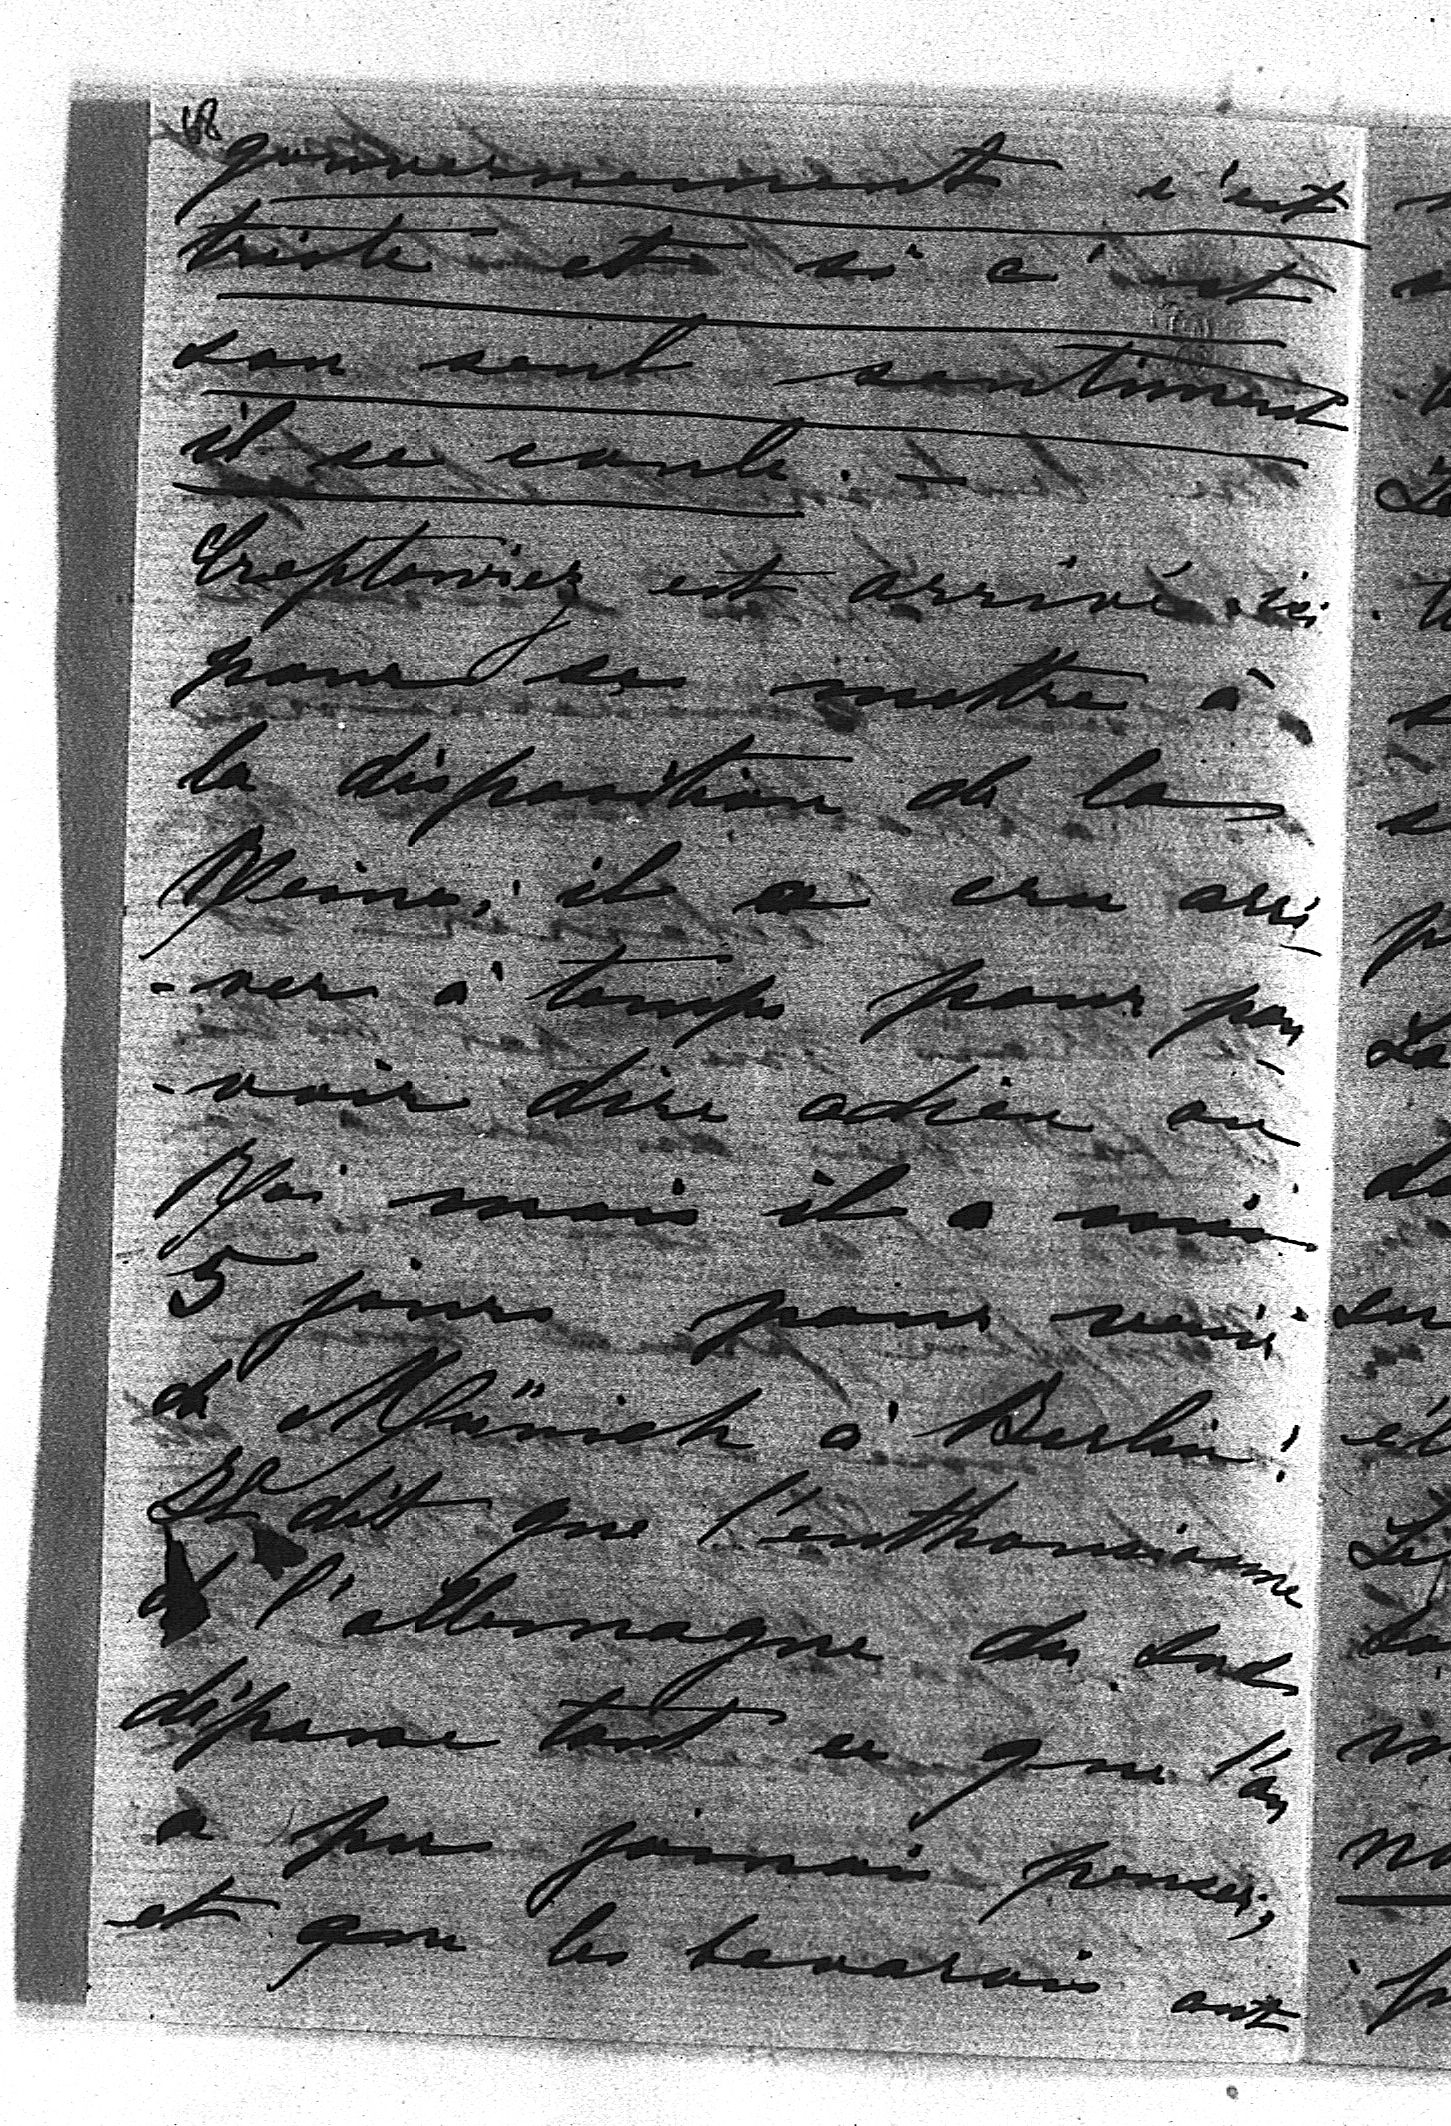 gouvernement c'est
triste et si c'est
son seul sentiment
il se coule. —
Creptowicz est arrivé ici
pour se mettre à
la disposition de la
Reine; il a cru arri
-ver à temps pour pou
-voir dire adieu au
Roi mais il a mis
5 jours pour venir
de Münich à Berlin!
Il dit que l'enthousiasme
de l'allemagne du Sud
dépasse tout ce que l'on
a pu jamais penser,
et que les bavarois ont